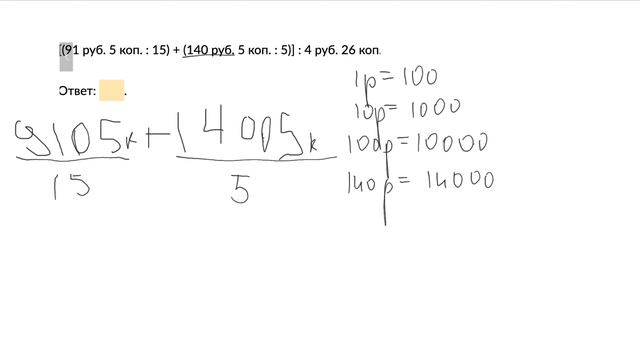 [(91 руб. 5 коп. : 15) + (140 руб. 5 коп. : 5)] : 4 руб. 26 коп.
Ответ: .
1р=100
10р=1000
9105к+14005к
100р=10000
15 5
140р=14000